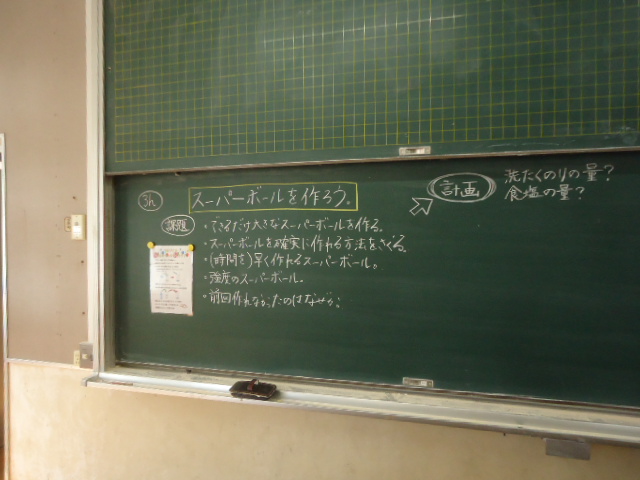 3h
スーパーボールを作ろう。
課題
・できるだけ大きなスーパーボールを作る。
・スーパーボールを確実に作れる方法をさぐる。
・(時間を)早く作れるスーパーボール。
・強度のスーパーボール。
・前回作れなかったのはなぜか?
計画
洗たくのりの量?
食塩の量?